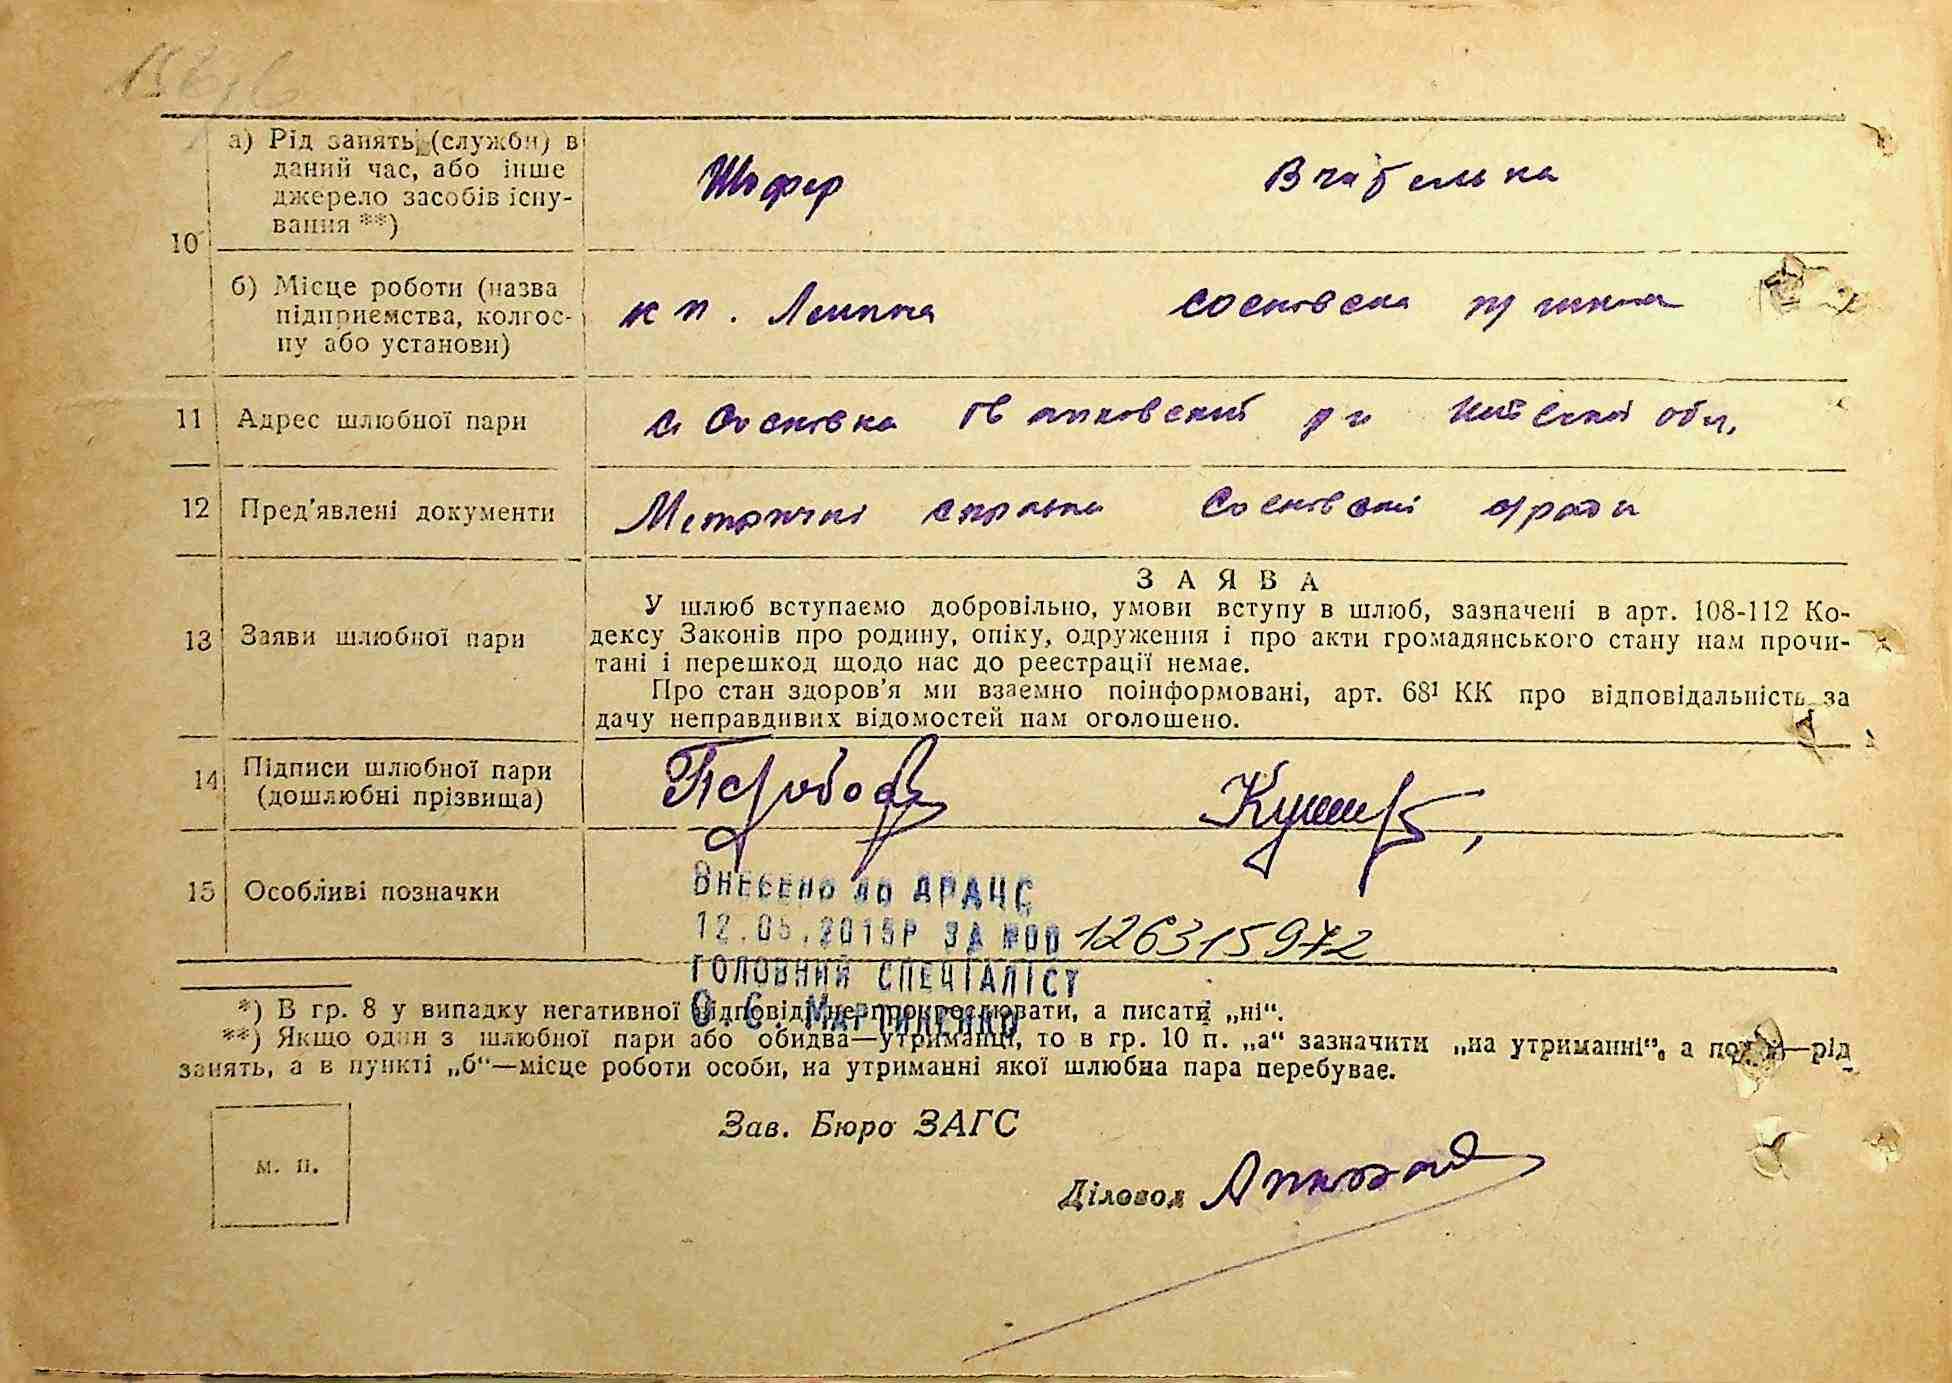 10
а) Рід занять (служби) в
даний час, або інше
джерело засобів існу-
вання **)
Шофер
Вчителька
б) Місце роботи (назва
підприємства, колгос-
пу або установи)
к п. Леніна
Сосновска п/ школа
11 Адрес шлюбної пари
с Сосновка Іванковский р н Київскої обл.
12 Пред'явлені документи
Метричні справки Сосновскої с/ради
13 Заяви шлюбної пари
ЗАЯВА
У шлюб вступаємо добровільно, умови вступу в шлюб, зазначені в арт. 108-112 Ко-
дексу Законів про родину, опіку, одруження і про акти громадянського стану нам прочи-
тані і перешкод щодо нас до реєстрації немає.
Про стан здоров'я ми взаємно поінформовані, арт. 68¹ КК про відповідальність за
дачу неправдивих відомостей нам оголошено.
14 Підписи шлюбної пари
(дошлюбні прізвища)
15 Особливі позначки
Внесено до ДРАЦС
12.05.2015р за №00 126315972
головний спеціаліст
О.Є. Мартиненко
*) В гр. 8 у випадку негативної відповіді не прокреслювати, а писати „ні“.
**) Якщо один з шлюбної пари або обидва—утриманці, то в гр. 10 п. „а“ зазначити „на утриманні“, а потім—рід
занять, а в пункті „б“—місце роботи особи, на утриманні якої шлюбна пара перебуває.
м. п.
Зав. Бюро ЗАГС
Діловод